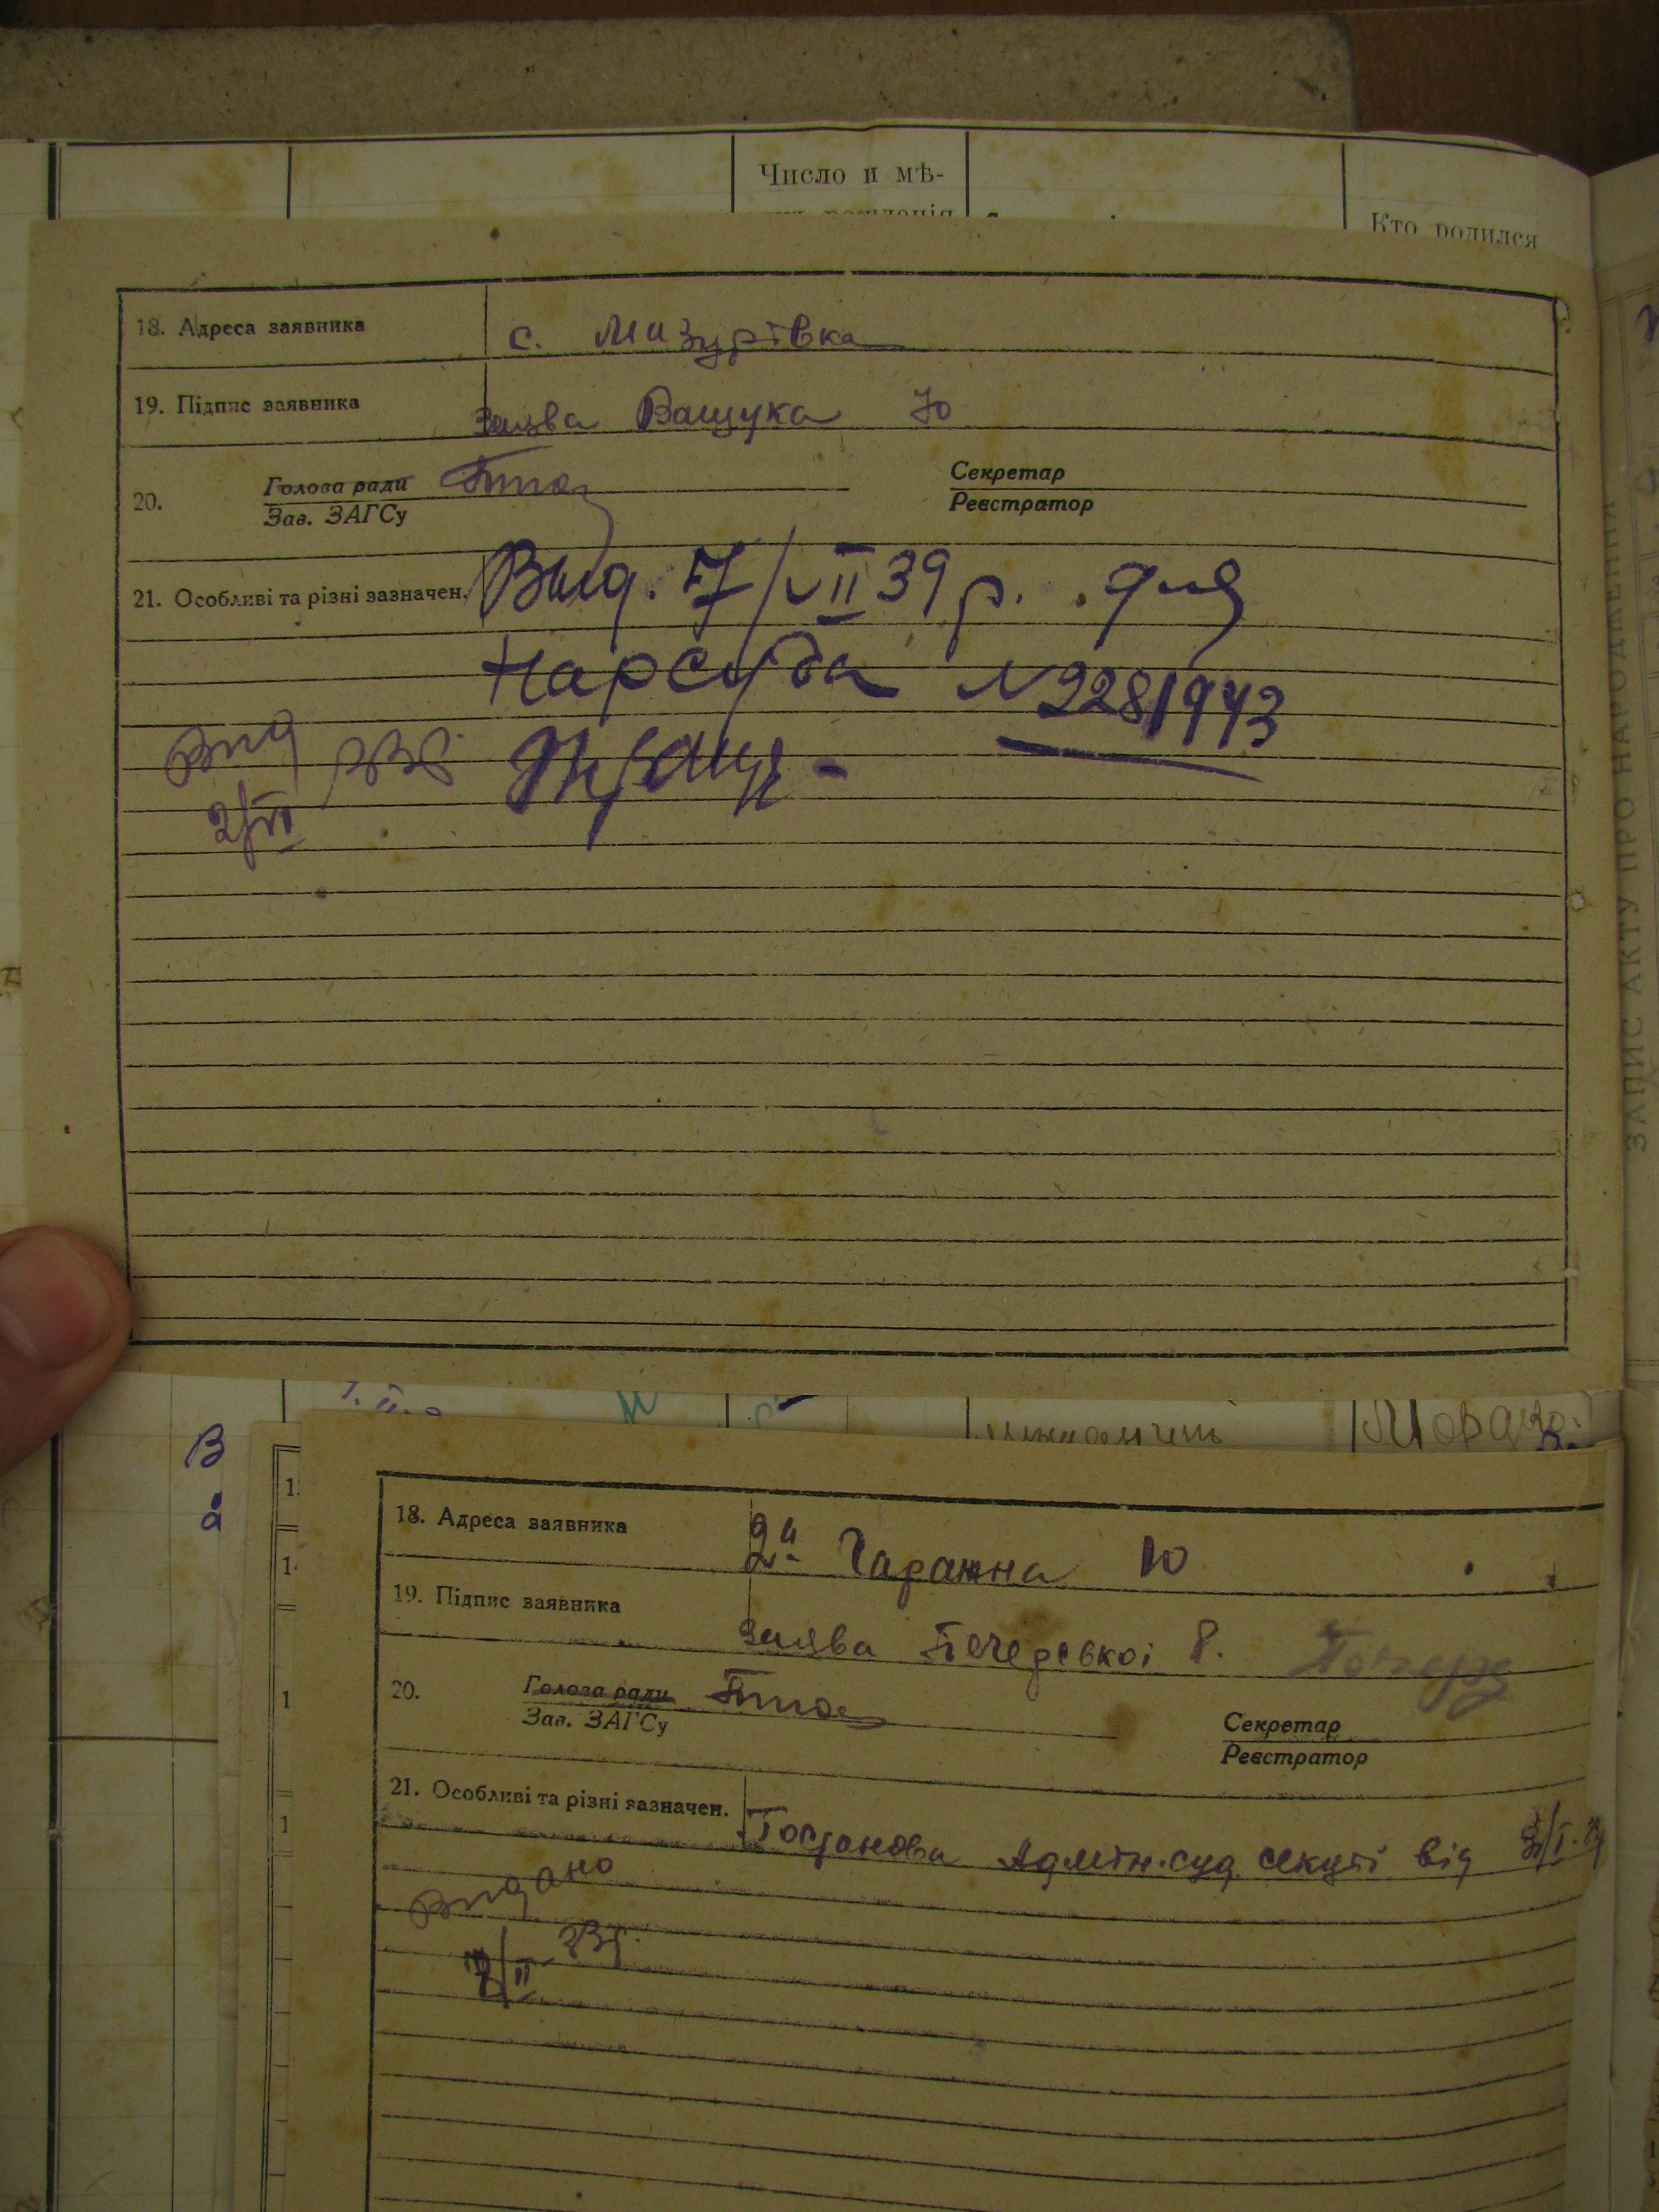 Число и мѣ-
Кто родился
18. Адреса заявника с. Мазурівка
19. Підпис заявника Заява Ващука Ю
20. Голова ради
Зав. ЗАГСу
Секретар
Реєстратор
21. Особливі та різні зазначен. Выд. 17/VII 39 р. для
Нарсуда N 228/943
Вид 33р.
2/VI
ЗАПИС АКТУ ПРО НАРОДЖЕННЯ
В
18. Адреса заявника 2а Гаражна 10
19. Підпис заявника Заява Печерської Р.
20. Голова ради
Зав. ЗАГСу
Секретар
Реєстратор
21. Особливі та різні зазначен. Постанова Адмін.суд. секції від
Видано
33р.